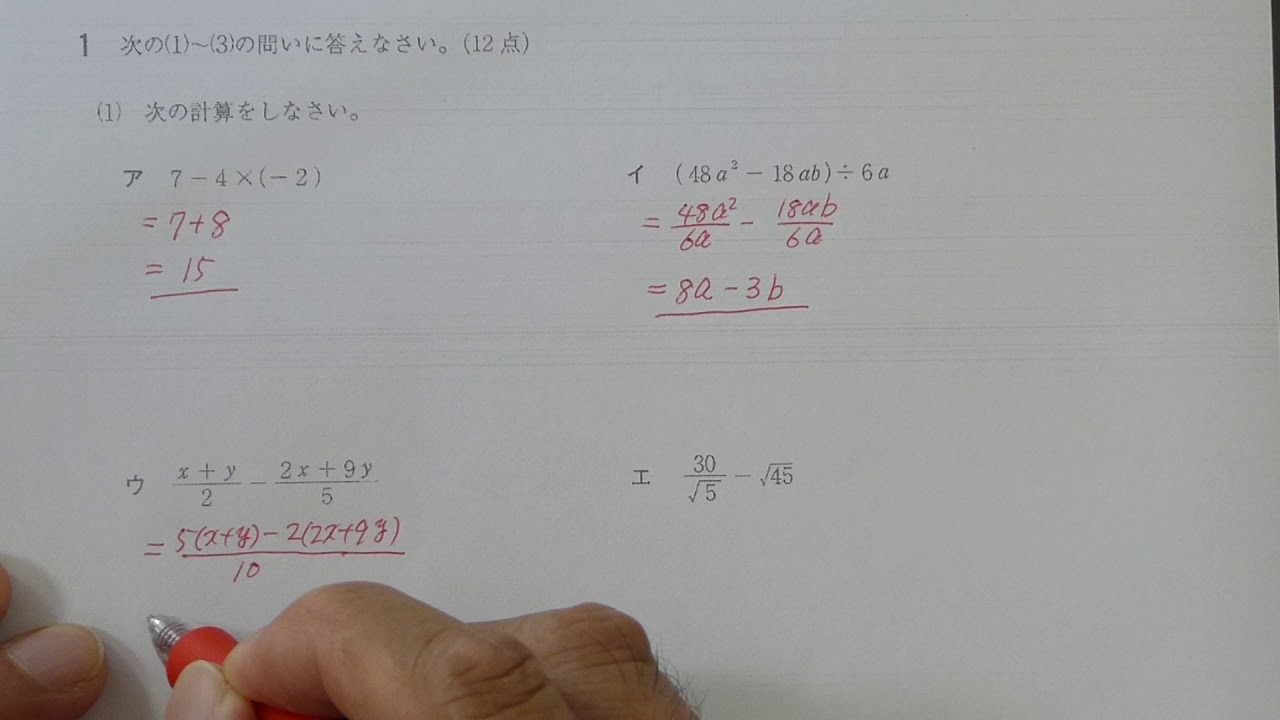 1 次の(1)~(3)の問いに答えなさい。(12点)
(1) 次の計算をしなさい。
ア 7－4×(－2)
= 7+8
= 15
イ (48a²－18ab)÷6a
= 48a²/6a － 18ab/6a
= 8a－3b
ウ (x+y)/2 － (2x+9y)/5
= (5(x+y)－2(2x+9y))/10
エ 30/√5 － √45